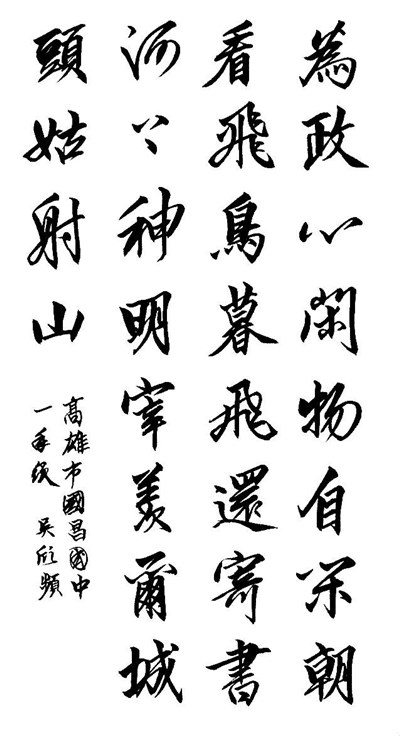 為政心閑物自閑朝
看飛鳥暮飛還寄書
河上神明宰羨爾城
頭姑射山
高雄市國昌國中
一年級 吳欣頻